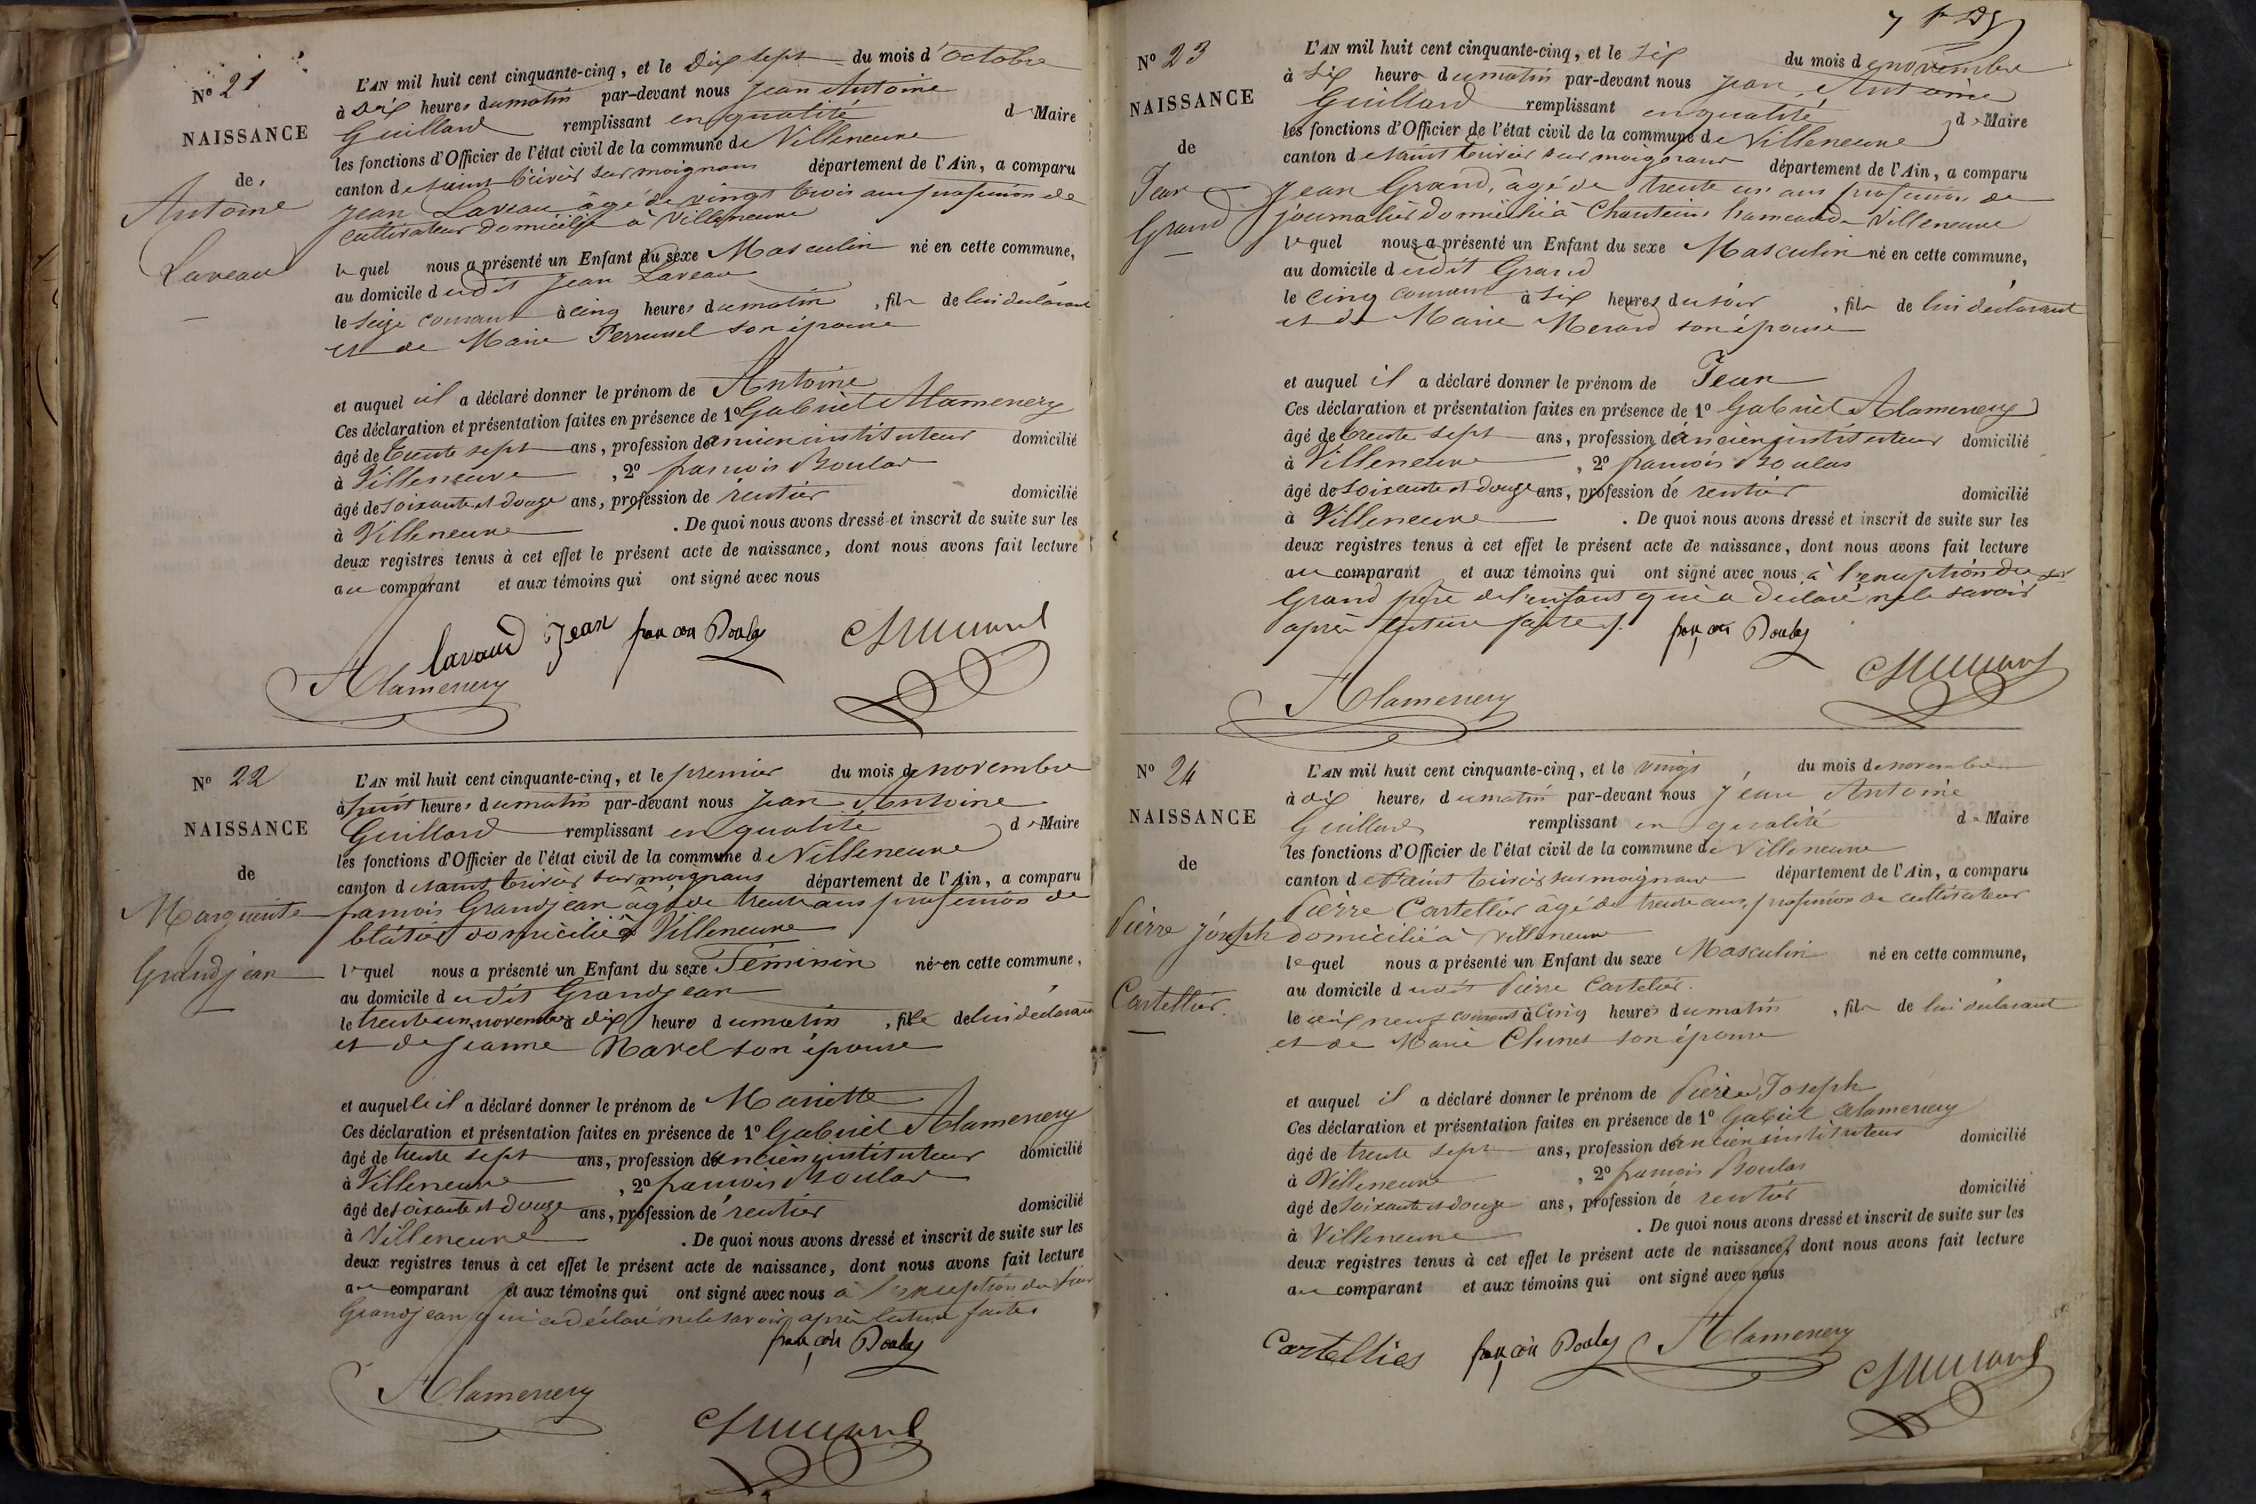 N° 21
NAISSANCE
de
Antoine
Laveau
L'AN mil huit cent cinquante-cinq, et le Dix sept du mois d'octobre
à dix heures du matin par-devant nous Jean Antoine
Guillard remplissant en qualité de Maire
les fonctions d'Officier de l'état civil de la commune de Villeneuve
canton de saint trivier sur moignans département de l'Ain, a comparu
Jean Laveau âgé de vingt trois ans profession de
cultivateur domicilié à Villeneuve
lequel nous a présenté un Enfant du sexe Masculin né en cette commune,
au domicile dudit Jean Laveau
le seize courant à cinq heures du matin, fils de lui déclarant
et de Marie Perrussel son épouse
et auquel il a déclaré donner le prénom de Antoine
Ces déclaration et présentation faites en présence de 1° Gabriel Alamenery
âgé de trente sept ans, profession d'ancien instituteur domicilié
à Villeneuve, 2° francois Boulas
âgé de soixante et douze ans, profession de rentier domicilié
à Villeneuve. De quoi nous avons dressé et inscrit de suite sur les
deux registres tenus à cet effet le présent acte de naissance, dont nous avons fait lecture
au comparant et aux témoins qui ont signé avec nous
lavaud Jean françois Boulas
Alamenery
N° 22
NAISSANCE
de
Marguerite
Grandjean
L'AN mil huit cent cinquante-cinq, et le premier du mois de novembre
à huit heures du matin par-devant nous Jean Antoine
Guillard remplissant en qualité de Maire
les fonctions d'Officier de l'état civil de la commune de Villeneuve
canton de saint trivier sur moignans département de l'Ain, a comparu
francois Grandjean âgé de trente ans profession de
blâtier domicilié à Villeneuve
lequel nous a présenté un Enfant du sexe Féminin né en cette commune,
au domicile dudit Grandjean
le trente un novembre à dix heures du matin, fille de lui déclarant
et de Jeanne Navel son épouse
et auquelle il a déclaré donner le prénom de Mariette
Ces déclaration et présentation faites en présence de 1° Gabriel Alamenery
âgé de trente sept ans, profession d'ancien instituteur domicilié
à Villeneuve, 2° francois Boulas
âgé de soixante et douze ans, profession de rentier domicilié
à Villeneuve. De quoi nous avons dressé et inscrit de suite sur les
deux registres tenus à cet effet le présent acte de naissance, dont nous avons fait lecture
au comparant et aux témoins qui ont signé avec nous à l'exception du sieur
Grandjean qui a déclaré ne le savoir après lecture faite
françois Boulas
Alamenery
N° 23
NAISSANCE
de
Jean
Grand
L'AN mil huit cent cinquante-cinq, et le six du mois de novembre
à six heures du matin par-devant nous Jean Antoine
Guillard remplissant en qualité de Maire
les fonctions d'Officier de l'état civil de la commune de Villeneuve
canton de saint trivier sur moignans département de l'Ain, a comparu
Jean Grand, âgé de trente un ans profession de
journalier domicilié à Chanteins hameau de Villeneuve
lequel nous a présenté un Enfant du sexe Masculin né en cette commune,
au domicile dudit Grand
le cinq courant à six heures du soir, fils de lui déclarant
et de Marie Merard son épouse
et auquel il a déclaré donner le prénom de Jean
Ces déclaration et présentation faites en présence de 1° Gabriel Alamenery
âgé de trente sept ans, profession d'ancien instituteur domicilié
à Villeneuve, 2° francois Boulas
âgé de soixante et douze ans, profession de rentier domicilié
à Villeneuve. De quoi nous avons dressé et inscrit de suite sur les
deux registres tenus à cet effet le présent acte de naissance, dont nous avons fait lecture
au comparant et aux témoins qui ont signé avec nous à l'exception du sr
Grand père de l'enfant qui a déclaré ne le savoir
après lecture faite. françois Boulas
Alamenery
N° 24
NAISSANCE
de
Pierre Joseph
Cartellier
L'AN mil huit cent cinquante-cinq, et le vingt du mois de novembre
à dix heures du matin par-devant nous Jean Antoine
Guillard remplissant en qualité de Maire
les fonctions d'Officier de l'état civil de la commune de Villeneuve
canton de Saint trivier sur moignans département de l'Ain, a comparu
Pierre Cartellier âgé de trente ans, profession de cultivateur
domicilié à Villeneuve
lequel nous a présenté un Enfant du sexe Masculin né en cette commune,
au domicile dudit Pierre Cartelier.
le dix neuf courant à cinq heures du matin, fils de lui déclarant
et de Marie Chinet son épouse
et auquel il a déclaré donner le prénom de Pierre Joseph
Ces déclaration et présentation faites en présence de 1° Gabriel Alamenery
âgé de trente sept ans, profession d'ancien instituteur domicilié
à Villeneuve, 2° francois Boulas
âgé de soixante et douze ans, profession de rentier domicilié
à Villeneuve. De quoi nous avons dressé et inscrit de suite sur les
deux registres tenus à cet effet le présent acte de naissance, dont nous avons fait lecture
au comparant et aux témoins qui ont signé avec nous
Cartellier françois Boulas Alamenery